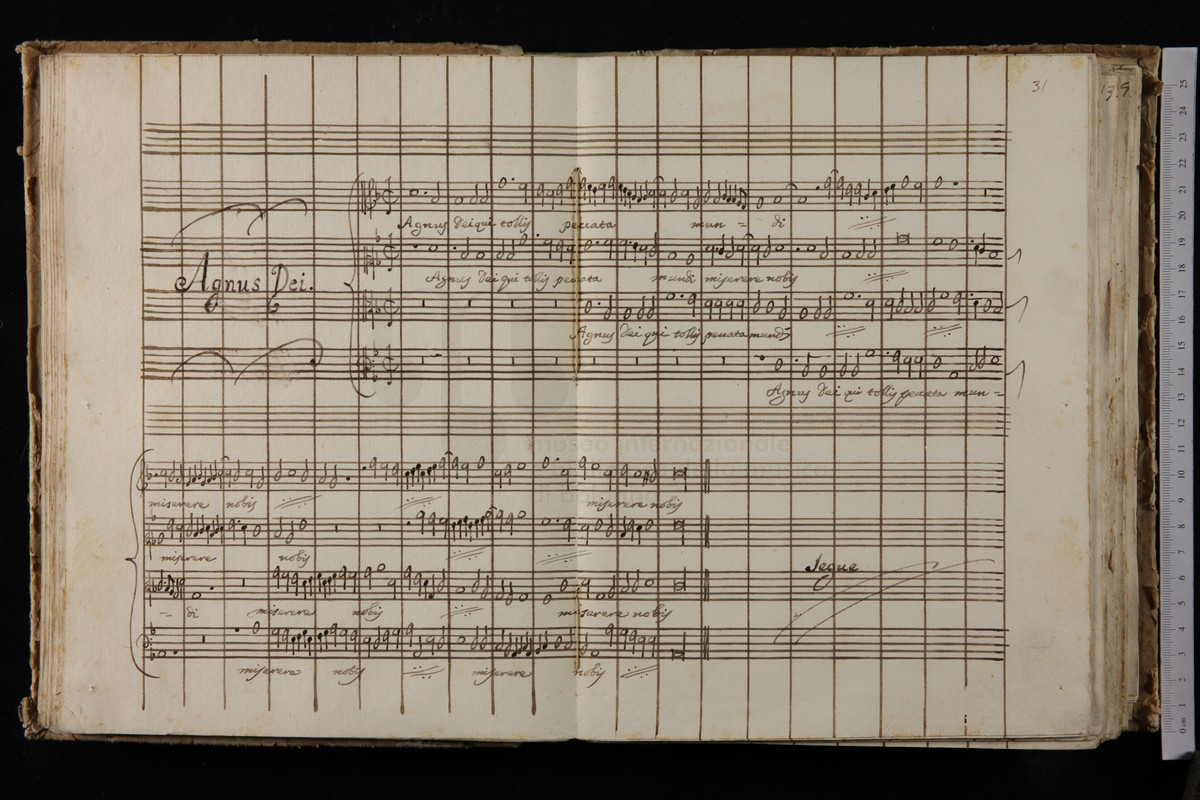 31
Agnus Dei qui tollis peccata mun = di
Agnus Dei.
Agnus Dei qui tollis peccata mundi miserere nobis
Agnus Dei qui tollis peccata mundi
Agnus Dei qui tollis peccata mun =
museo internazionale
di bologna
miserere nobis miserere nobis
miserere nobis
Segue
= di miserere nobis miserere nobis
miserere nobis miserere nobis
0 cm 1 2 3 4 5 6 7 8 9 10 11 12 13 14 15 16 17 18 19 20 21 22 23 24 25